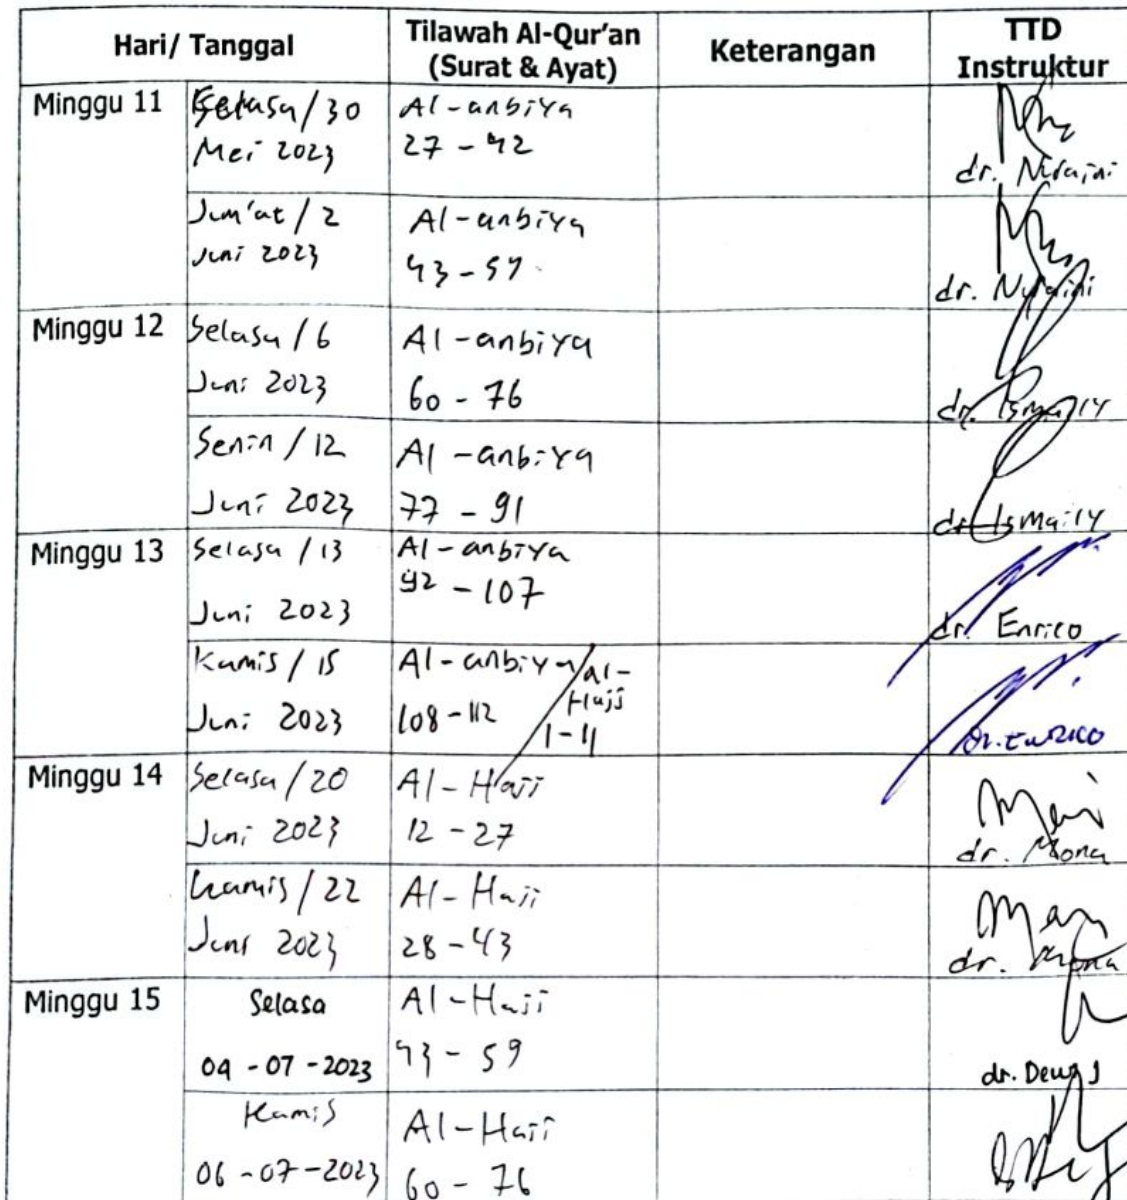 Hari/ Tanggal
Tilawah Al-Qur'an
(Surat & Ayat)
Keterangan
TTD
Instruktur
Minggu 11
Selasa / 30
Mei 2023
Al-anbiya
27 - 42
dr. Nuraini
Jum'at / 2
Juni 2023
Al-anbiya
43 - 59
dr. Nuraini
Minggu 12
Selasa / 6
Juni 2023
Al-anbiya
60 - 76
dr. Ismaily
Senin / 12
Juni 2023
Al-anbiya
77 - 91
dr. Ismaily
Minggu 13
Selasa / 13
Juni 2023
Al-anbiya
92 - 107
dr. Enrico
Kamis / 15
Juni 2023
Al-anbiya/al-
Hajj
108 - 112
1 - 11
Dr. Enrico
Minggu 14
Selasa / 20
Juni 2023
Al-Hajj
12 - 27
dr. Mona
Kamis / 22
Juni 2023
Al-Hajj
28 - 43
dr. Mona
Minggu 15
Selasa
04 - 07 - 2023
Al-Hajj
43 - 59
dr. Dewi J
Kamis
06 - 07 - 2023
Al-Hajj
60 - 76